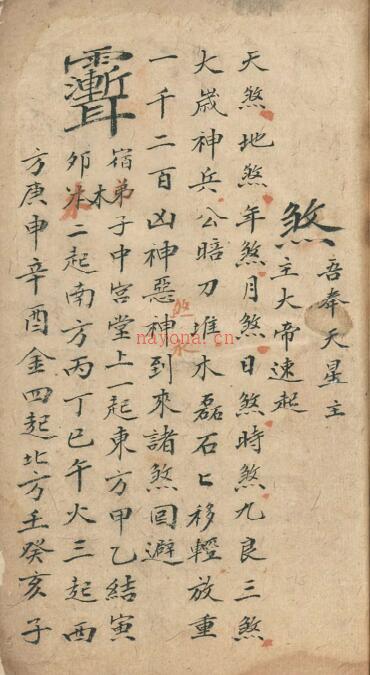 煞
吾奉天星主
主大帝速起
天煞地煞年煞月煞日煞時煞九良三煞
大歲神兵公暗刀堆木磊石匕移輕放重
一千二百凶神惡神到來諸煞回避
宿弟子中宮堂上一起東方甲乙結寅
卯木二起南方丙丁巳午火三起西
方庚申辛酉金四起北方壬癸亥子
nayona.cn